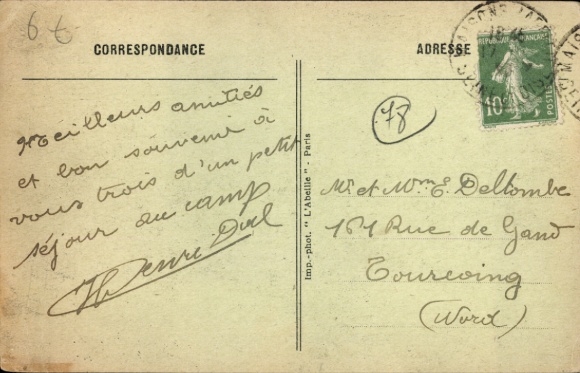 6 €
CORRESPONDANCE
ADRESSE
MAISONS-LAF
SEINE
RÉPUBLIQUE FRANÇAISE
10
POSTES
78
Meilleurs amitiés
et bon souvenir à
vous trois d'un petit
séjour au camp
Henri
Imp.-phot. "L'Abeille" - Paris
Mr et Mme E. Deltombe
161 Rue de Gand
Tourcoing
(Nord)